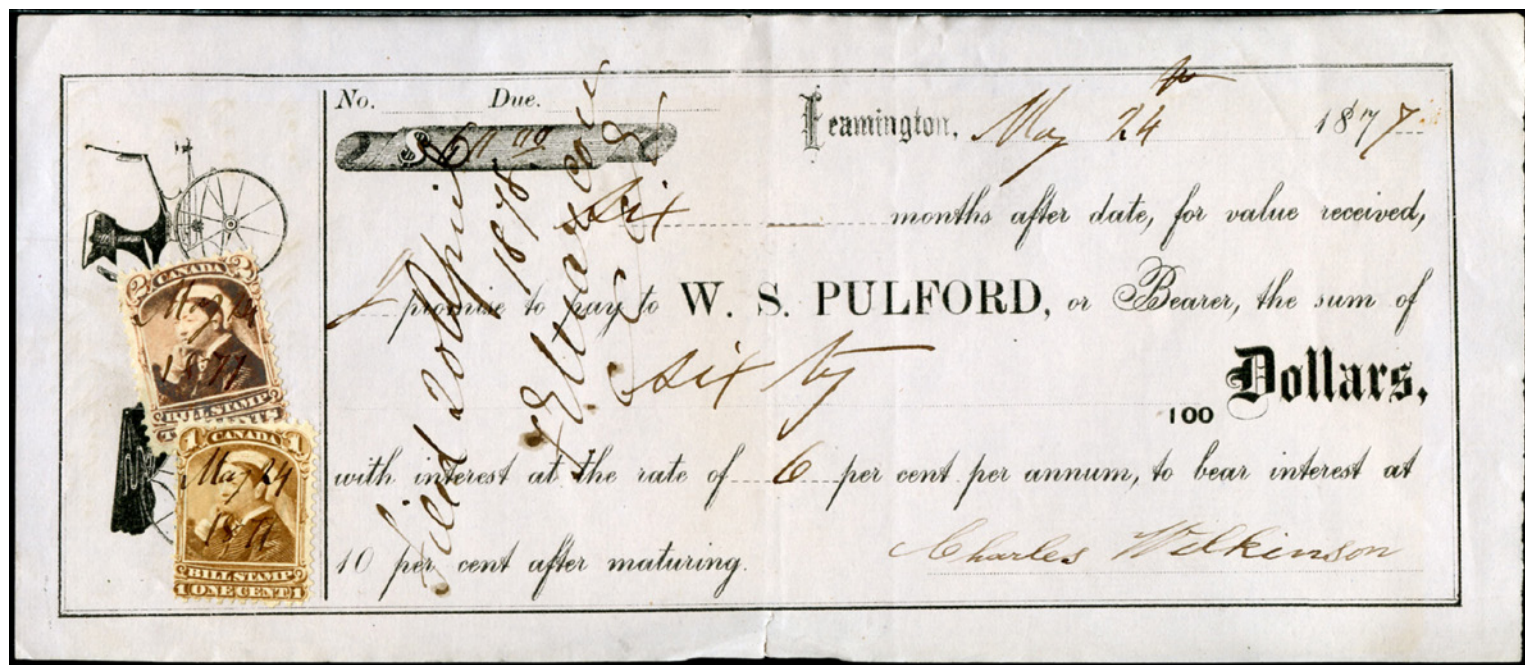 No. Due.
$60.00
Leamington, May 24 1877
Six months after date, for value received,
I promise to pay to W. S. PULFORD, or Bearer, the sum of
Sixty
100 Dollars,
with interest at the rate of 6 per cent per annum, to bear interest at
10 per cent after maturing.
Charles Wilkinson
Filed 20 April
1878
CANADA
2 2
May 24
1877
BILL STAMP
CANADA
1 1
May 24
1877
BILL STAMP
1 ONE CENT 1